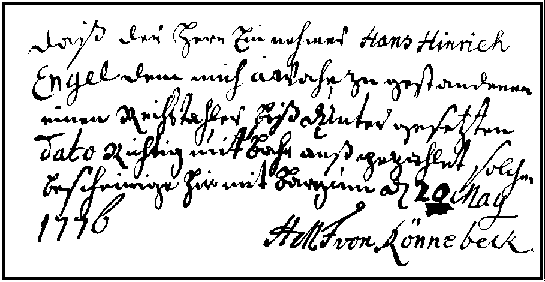 daß der Herr Einnehmer Hans Hinrich
Engel dem mich zu gestandenen
einen Reichsthaler biß Unter gesetzten
Dato Richtig mit auß gezahlet solches
bescheinige hir mit 20 May
1776
von Könnebeck